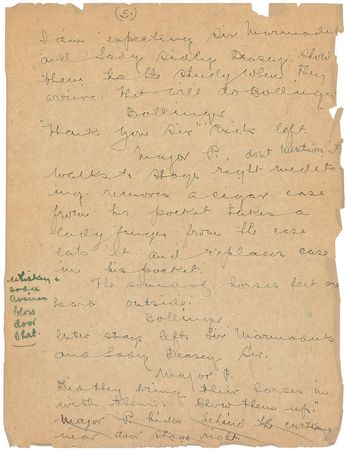 (5.)
I am expecting Sir Marmaduke
and Lady Sidly Deasey. Show
them to the study when they
arrive. That will do Bollinger
Bollinger
"Thank you Sir" Exits left
Major P. dont mention it
walks to stage right medita
ing removes a cigar case
from his pocket takes a
lady finger from the case
eats it and replaces case
in his pocket.
The sound of horses feet are
heard outside.
Bollinger
Enter stage left Sir Marmaduke
and Lady Deasey Sir.
Major P.
Did they bring their horses in
with them? Show them up.
Major P. hides behind the curtains
near door stage right.
whiskey &
soda
business
blow
door
that